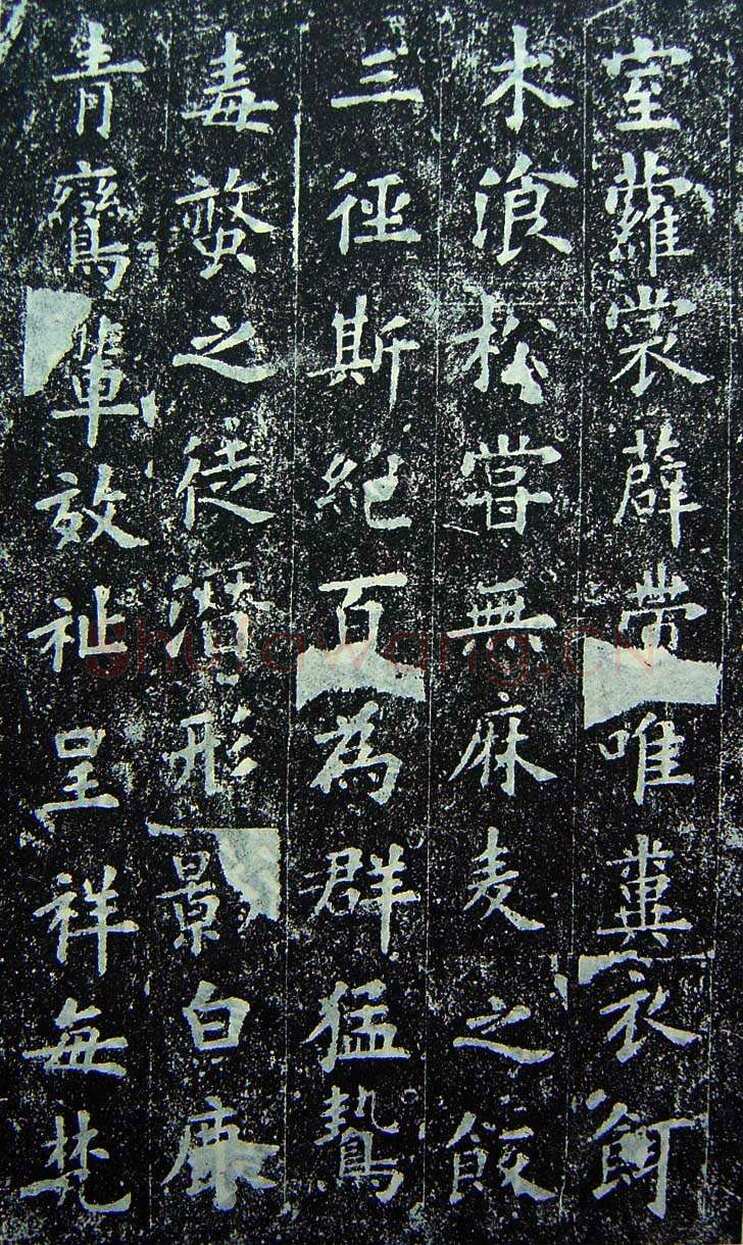 室蘿裳薜帶唯糞衣餌
木湌松嘗無麻麦之飯
三徑斯絕百為群猛鷙
毒螫之徒潛形景白鹿
青鸞輩效祉呈祥每梵
shufawang.CN